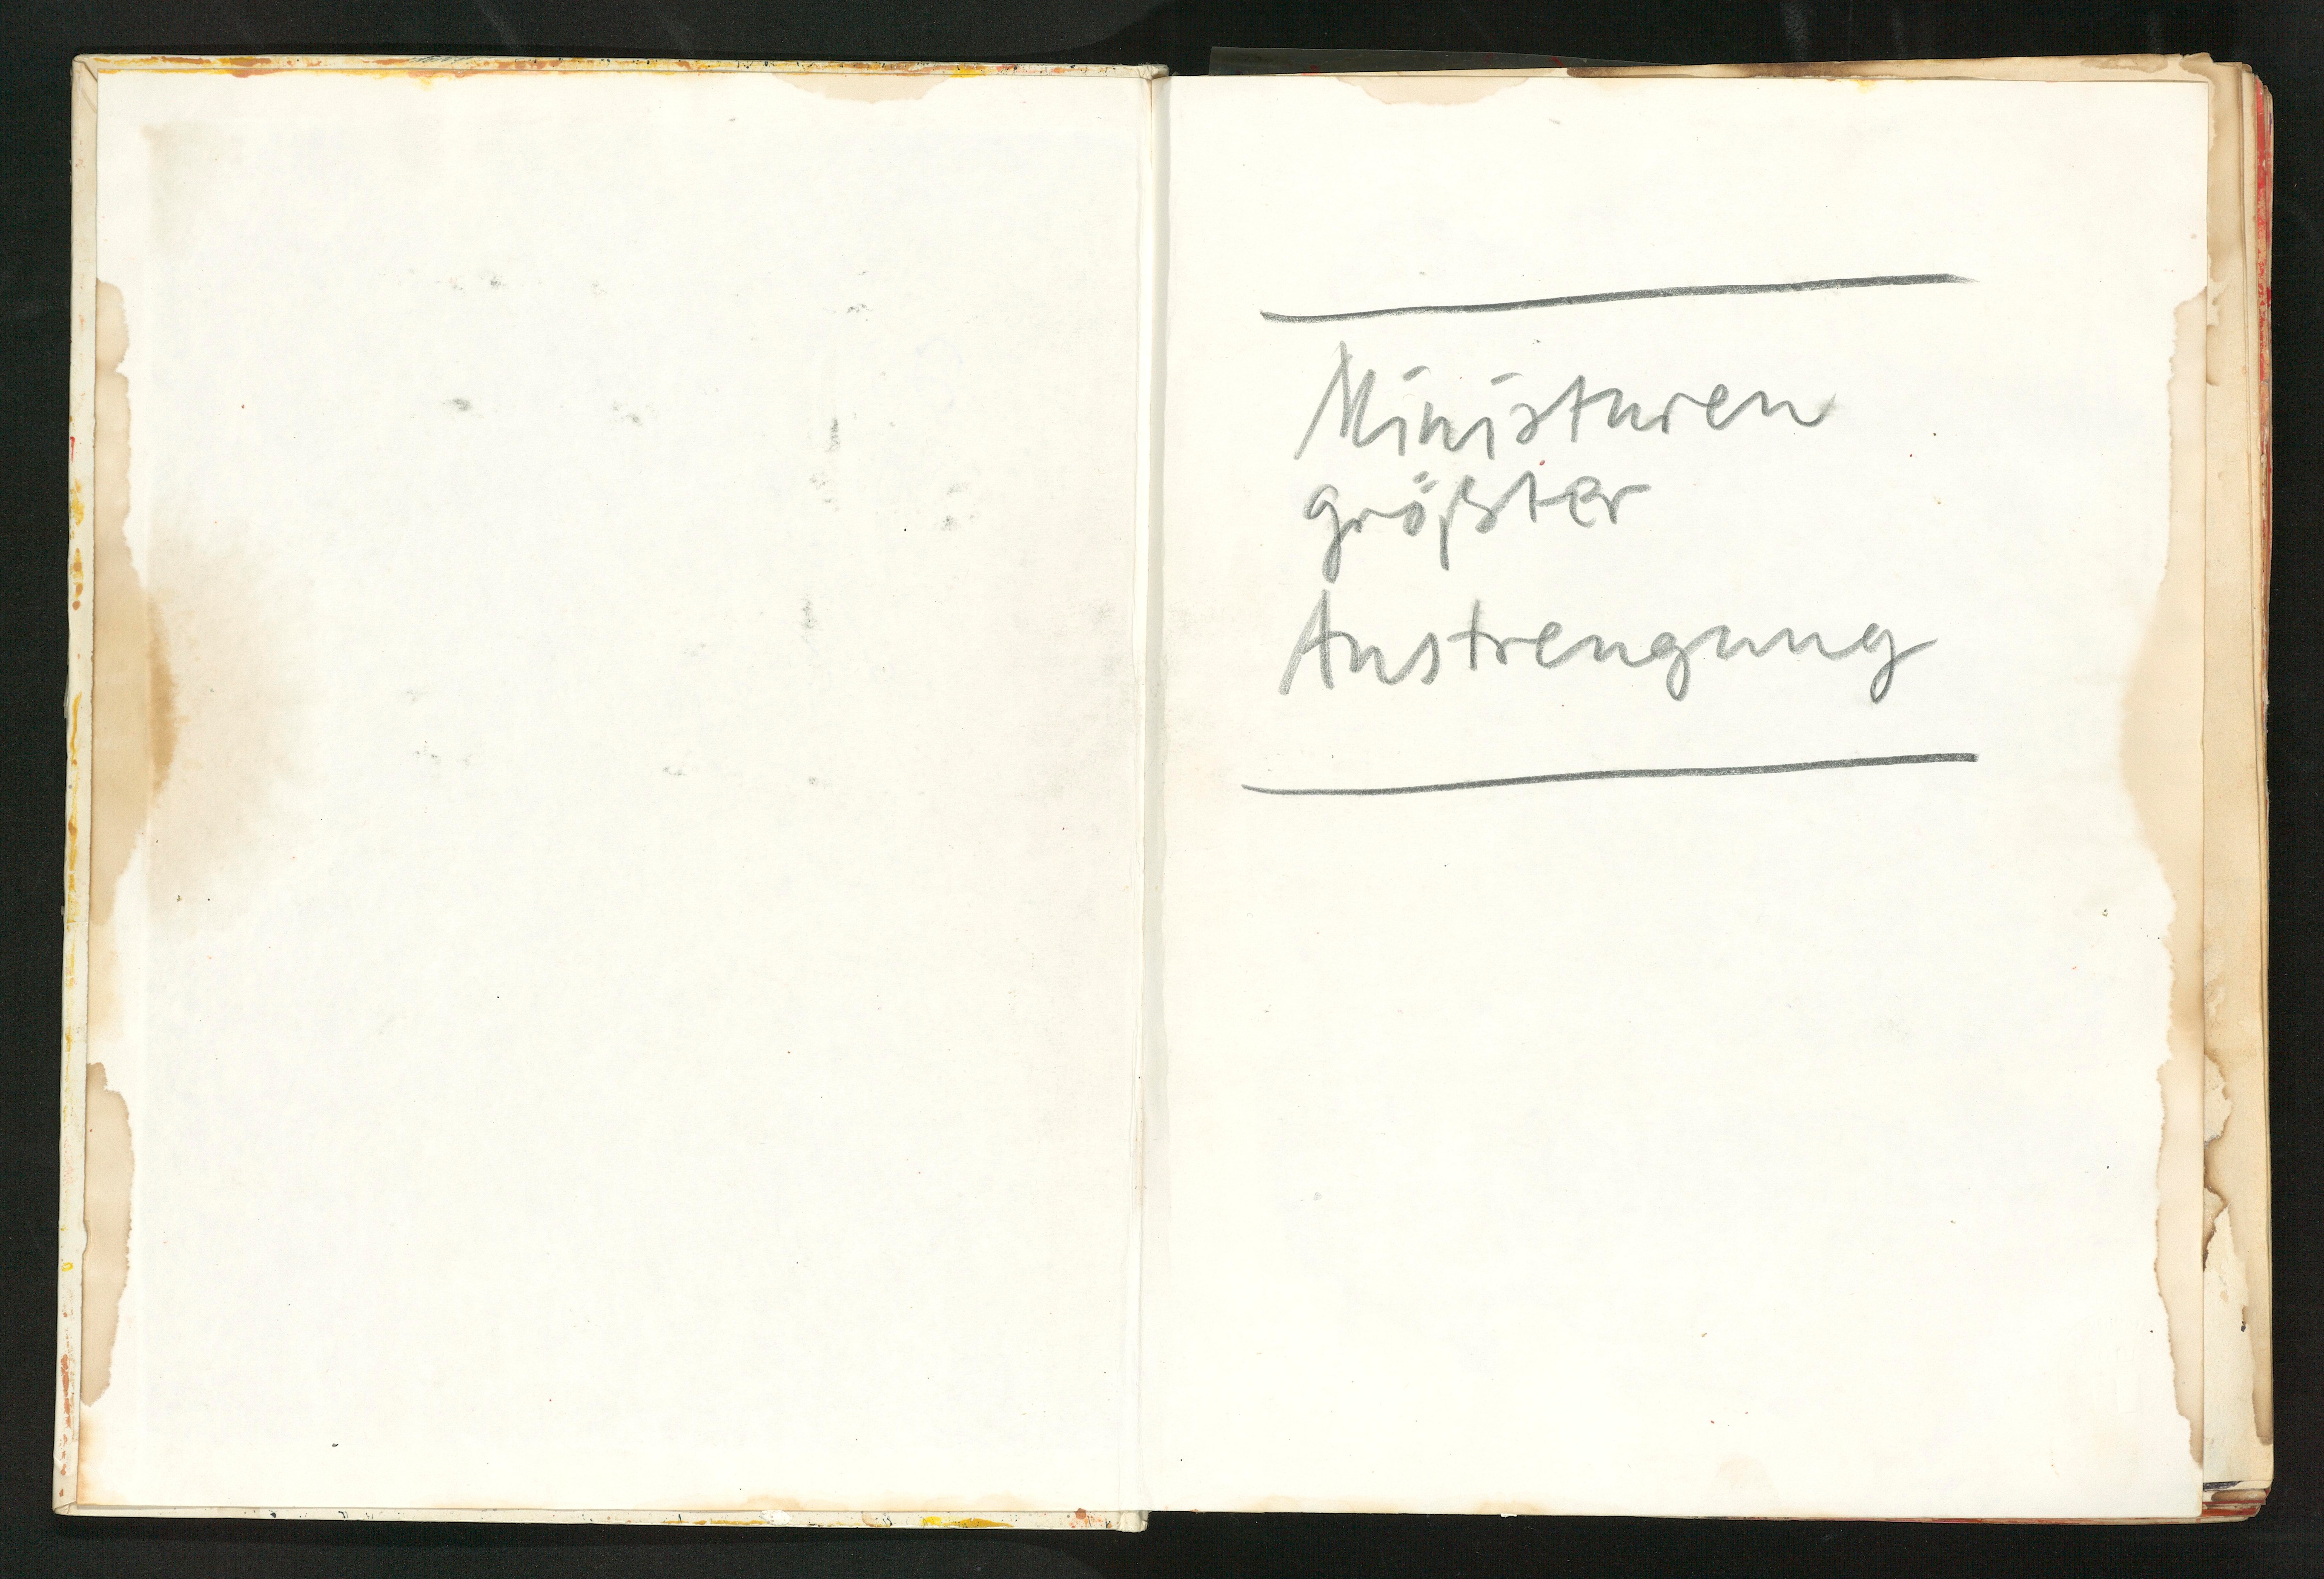 Miniaturen
größter
Anstrengung